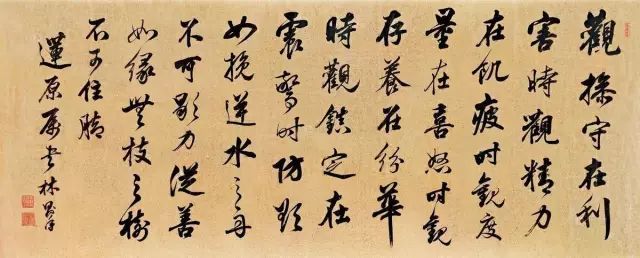 觀操守在利
害時觀精力
在飢疲時觀度
量在喜怒時觀
存養在紛華
時觀鎮定在
震驚時防欲
如挽逆水之舟
不可歇力從善
如緣無枝之樹
不可住腳
蓮原屬書林則徐